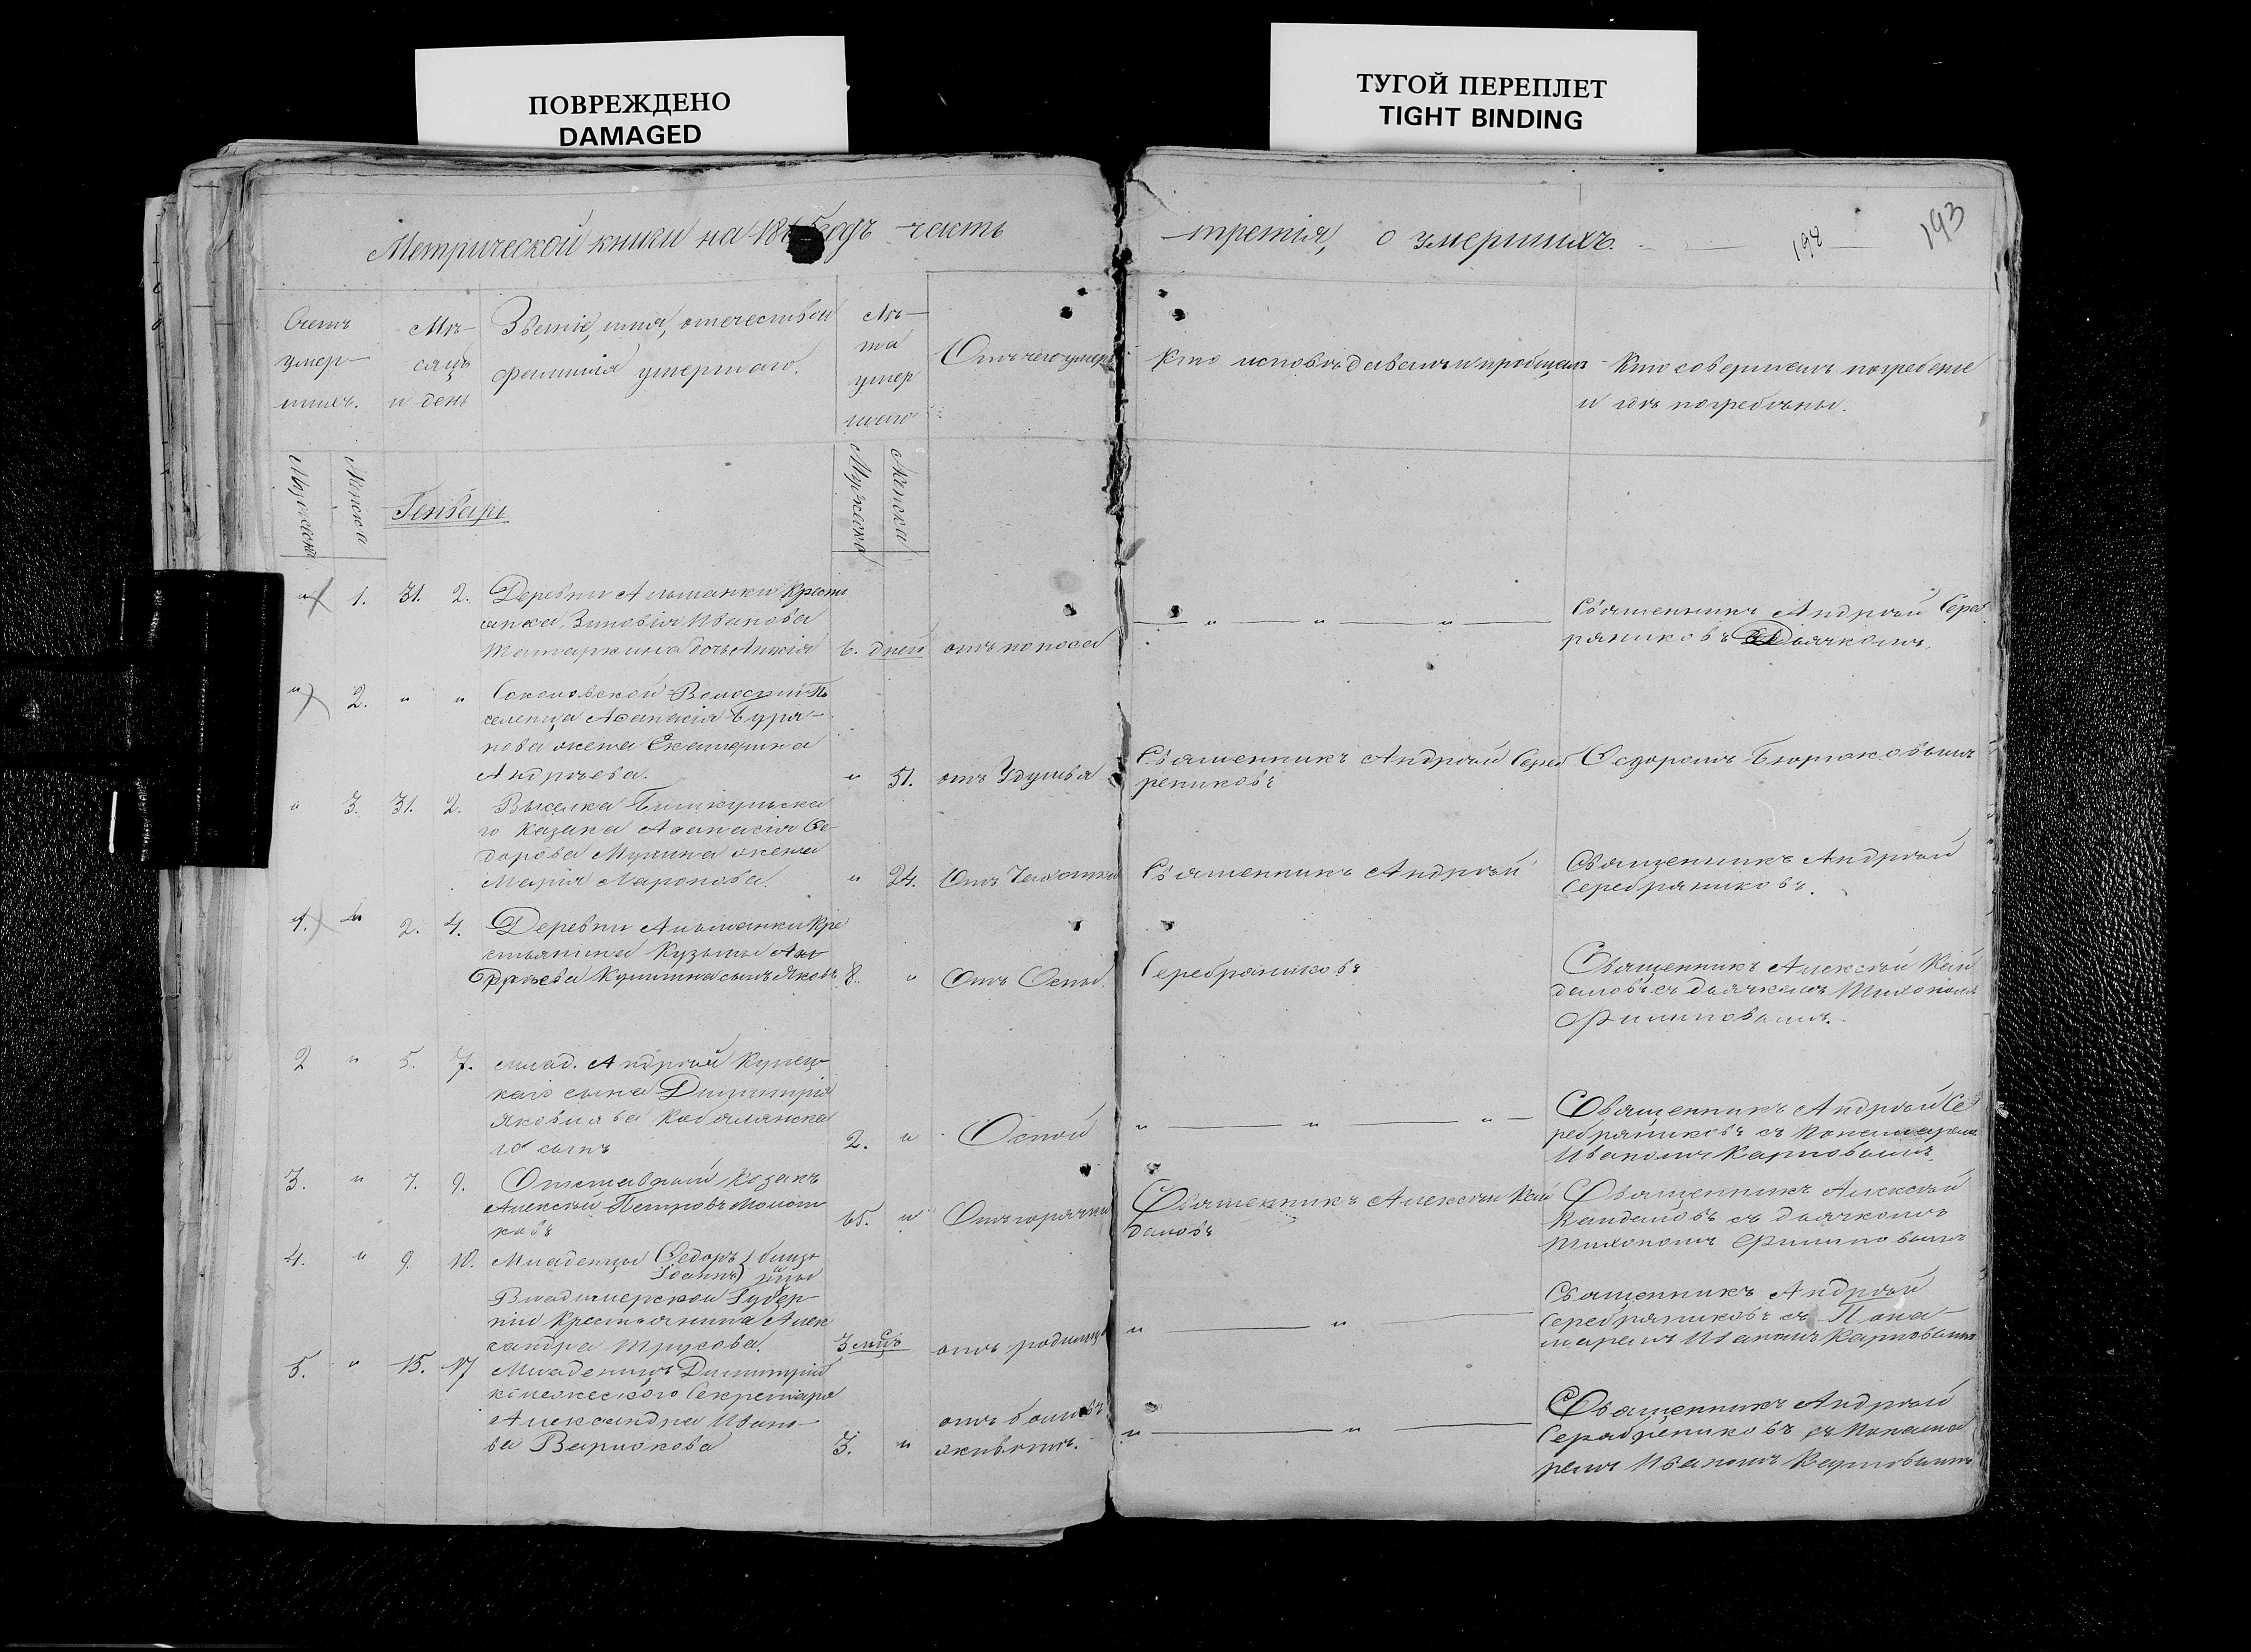 ПОВРЕЖДЕНО
DAMAGED
ТУГОЙ ПЕРЕПЛЕТ
TIGHT BINDING
Метрической книги на 1865 годъ часть
третія, о умершихъ.
198
193
Счетъ
умер-
шихъ.
Мѣ-
сяцъ
и день
Званіе, имя, отечество и
фамилія умершаго.
Лѣ-
та
умер
шаго
Отъ чего умеръ
Кто исповѣдывалъ и пріобщалъ
Кто совершалъ погребеніе
и гдѣ погребены.
Мужеска
Женска
Генварь
Мужеска
Женска
1. 31. 2. Деревни Ильманки Кресть
янка Зиновія Иванова
дочь 6. дней отъ поноса
Священникъ Андрей Сереб
ряниковъ съ Дьячкомъ
" 2. " " Соколовской Волости По
селенца Аѳанасія Буря-
нова жена Екатерина
Андреева. " 51. отъ Удушья
Священникъ Андрей Сереб
рениковъ
Ѳедоромъ
" 3. 31. 2. Выселка Бишкульска
го Казака Аѳанасія Ѳе-
дорова Мунина жена
Марія Миронова. " 24. Отъ Чахотки
Священникъ Андрей
Священникъ Андрей
Серебряниковъ.
1. " 2. 4. Деревни Ильманки Кре
стьянина Кузьмы Ан
дреева сынъ Яковъ 8. " Отъ Оспы.
Серебряниковъ
Священникъ Алексѣй Кай
даловъ съ дьячкомъ Тихономъ
Филиповымъ.
2 " 5. 7. млад. Андрей Купец-
каго сына Димитрія
Яковлева
го сынъ 2. " Оспой
Священникъ Андрей Се
ребряниковъ съ Понамаремъ
Иваномъ Карповымъ
3. " 7. 9. Отставной Козакъ
Алексѣй Петровъ Молот
ковъ 65. " Отъ горячки
Священникъ Алексѣй Кай
даловъ
Священникъ Алексѣй
Кайдаловъ съ дьячкомъ
Тихономъ Филиповымъ
4. " 9. 10. Младенцы Ѳедоръ близ
Іоаннъ нецы
Владимерской Губер
ніи Крестьянина Алек
сандра Трусова. 3 мѣс. отъ родимца
Священникъ Андрей
Серебряниковъ съ Пона-
маремъ Иваномъ Карповымъ
5. " 15. 17 Младенецъ Димитрій
колежескаго Секретаря
Александра Ивано-
ва Варнокова 3. " отъ боли въ
животѣ.
Священникъ Андрей
Серебрениковъ съ Понама
ремъ Иваномъ Карповымъ